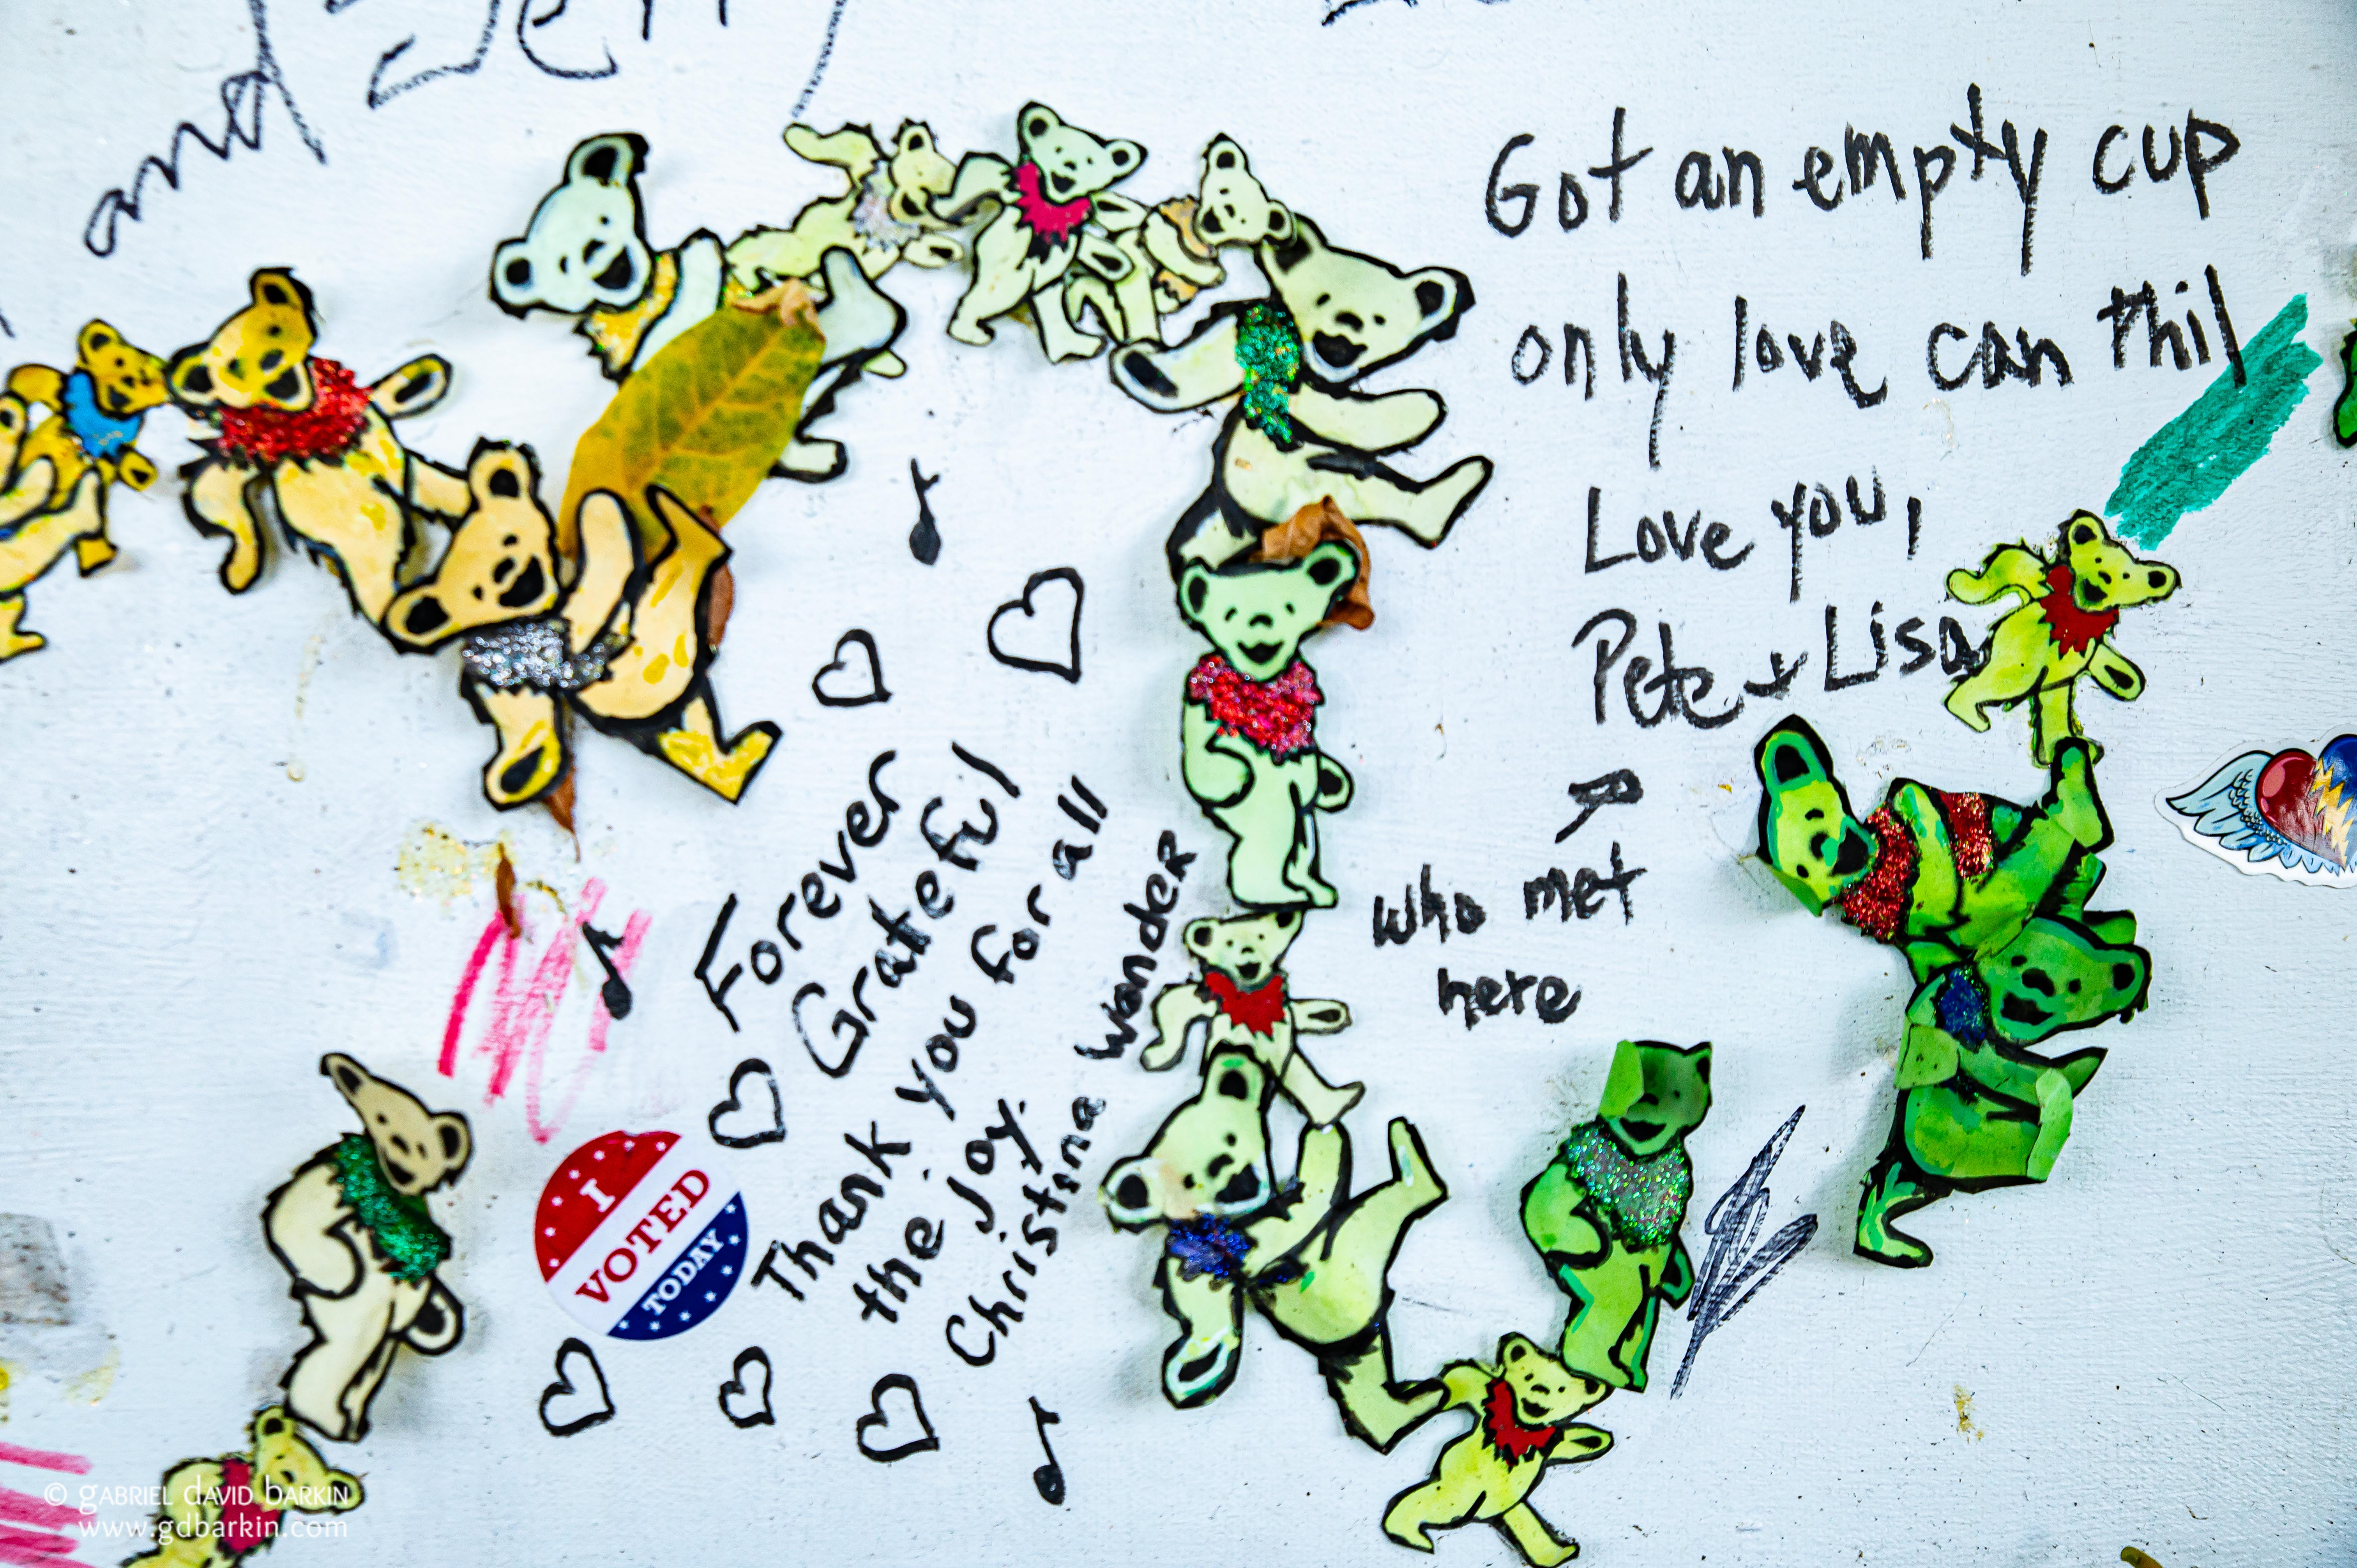 and Jerry
Got an empty cup
only love can thil
Love you,
Pete + Lisa
who met
here
Forever
Grateful
Thank you for all
the joy.
Christina Wonder
I
VOTED
TODAY
© GABRIEL DAVID BARKIN
www.gdbarkin.com